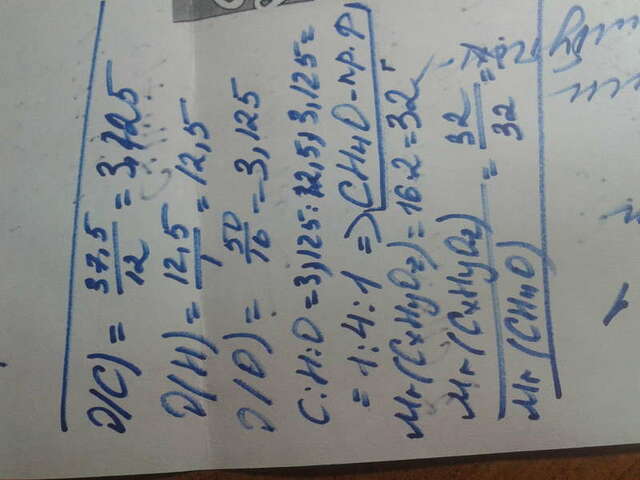 ν(C) = 37,5/12 = 3,125
ν(H) = 12,5/1 = 12,5
ν(O) = 50/16 = 3,125
C:H:O = 3,125:12,5:3,125 =
= 1:4:1 => CH4O - пр. ф
Mr(CxHyOz) = 16·2 = 32
Mr(CxHyOz)/Mr(CH4O) = 32/32 =